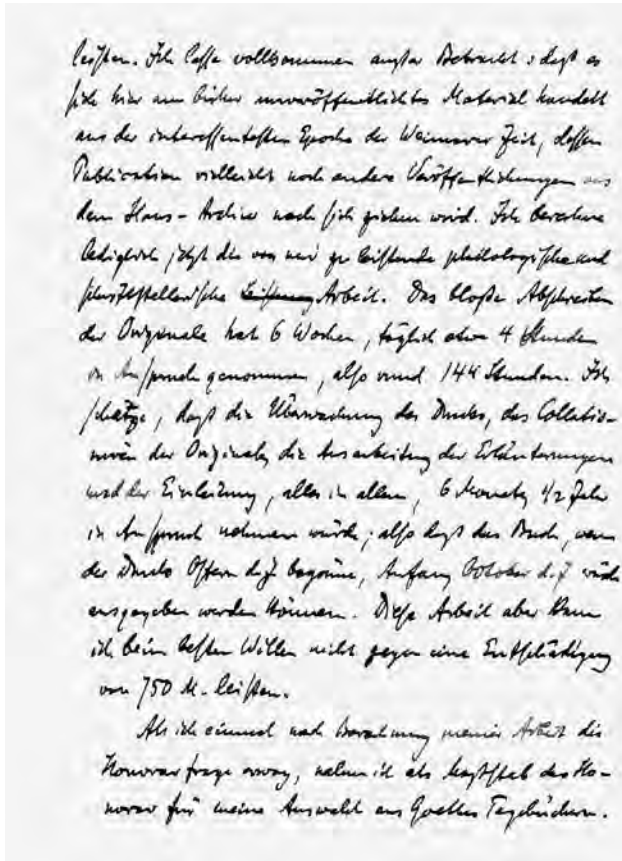 leisten. Ich lasse vollkommen außer Betracht, daß es
sich hier um bisher unveröffentlichtes Material handelt
aus der interessantesten Epoche der Weimarer Zeit, dessen
Publication vielleicht noch andere Veröffentlichungen aus
dem Haus-Archiv nach sich ziehen wird. Ich berechne
lediglich jetzt die von mir zu leistende philologische und
schriftstellerische Arbeit. Das bloße Abschreiben
der Originale hat 6 Wochen, täglich etwa 4 Stunden
in Anspruch genommen, also rund 144 Stunden. Ich
schätze, daß die Überwachung des Drucks, das Collatio-
nieren der Originale, die Ausarbeitung der Erläuterungen
und der Einleitung, alles in allem, 6 Monate, 1/2 Jahr
in Anspruch nehmen würde; also daß das Buch, wenn
der Druck Ostern d. J. begönne, Anfang October d. J. würde
ausgegeben werden können. Diese Arbeit aber kann
ich beim besten Willen nicht gegen eine Entschädigung
von 750 M. leisten.
Als ich einmal nach Berechnung meiner Arbeit die
Honorarfrage erwog, nahm ich als Maßstab das Ho-
norar für meine Auswahl aus Goethes Tagebüchern.